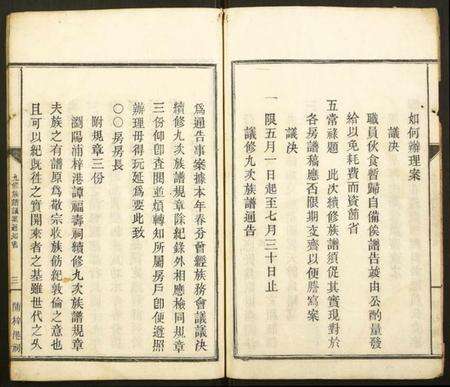 如何辦理案
議決
職員伙食暫歸自備俟譜告竣由公酌量發
給以免耗費而資節省
五當祿題 此次續修族譜須促其實現對於
各房譜稿應否限期支齊以便謄寫案
議決
一 限五月一日起至七月三十日止
議修九次族譜通告
爲通告事案據本年春分會經族務會議議決
續修九次族譜規章除紀錄外相應檢同規章
三份仰卽查閱並煩轉知所屬房戶卽便遵照
辦理毋得玩延爲要此致
〇〇房房長
附規章三份
瀏陽浦梓港譚福壽祠續修九次族譜規章
夫族之有譜原爲敬宗收族飭紀敦倫之意也
且可以紀既往之實開來者之基雖世代之久
三
浦梓港祠